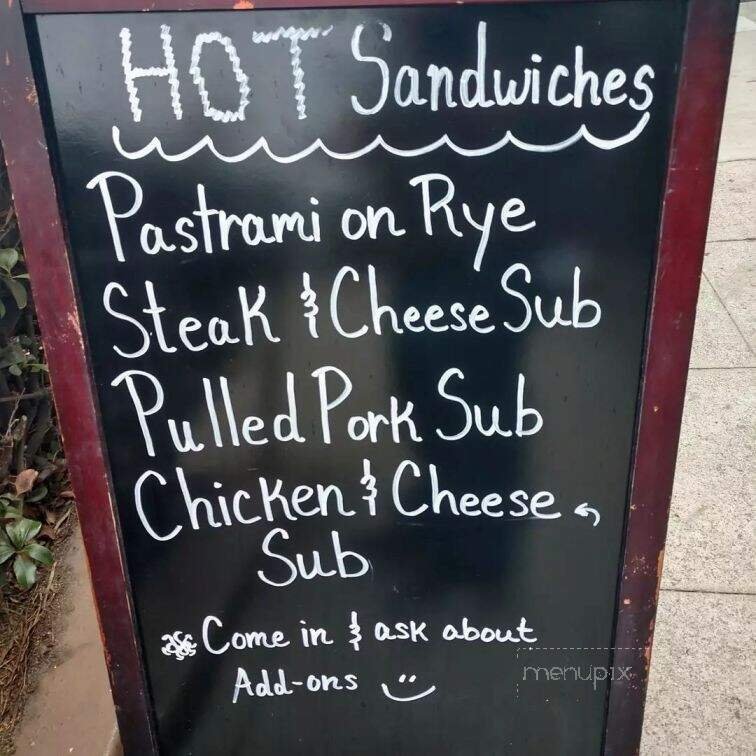 HOT Sandwiches
Pastrami on Rye
Steak & Cheese Sub
Pulled Pork Sub
Chicken & Cheese
Sub
Come in & ask about
Add-ons
menupix